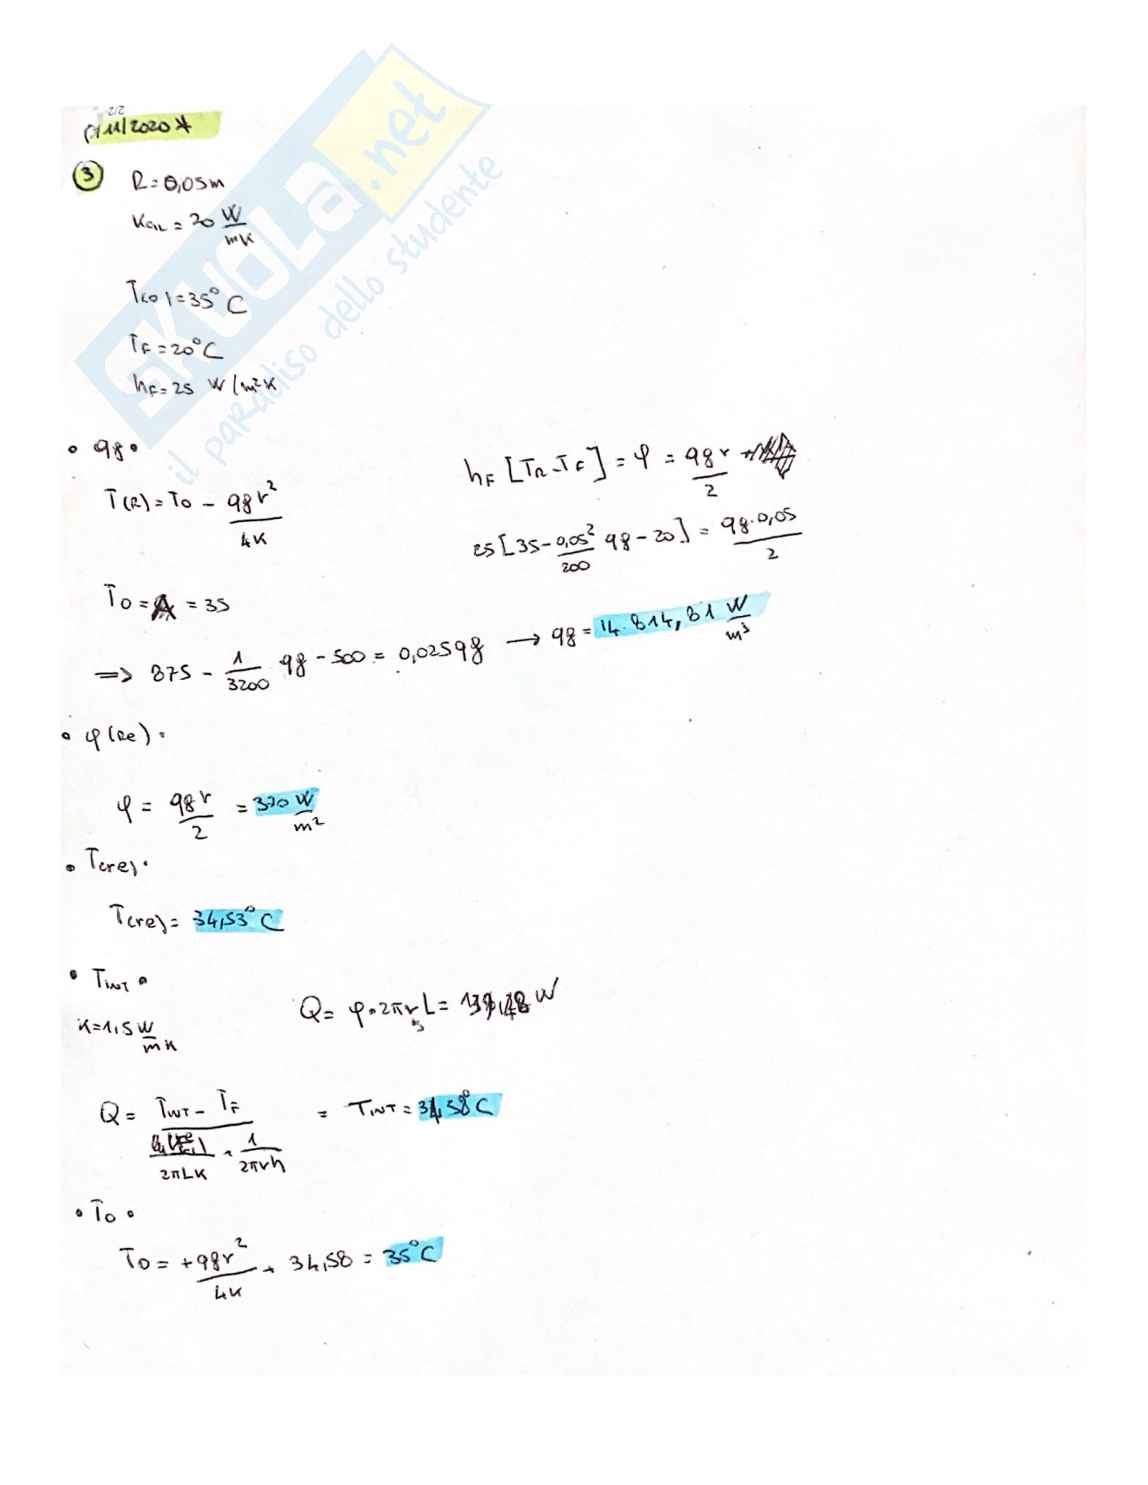 2/2
/11/2020 *
3 R=0,05m
K = 20 W/mK
T(0)=35°C
TF=20°C
hF=25 W/m²K
• qg •
hF [TR-TF] = φ = qg r / 2
T(R)=T0 - qg r² / 4K
25[35-0,05²/200 qg-20] = qg·0,05 / 2
T0= = 35
=> 875 - 1/3200 qg - 500 = 0,025qg → qg = 14.814,81 W/m³
• φ(Re) •
φ = qg r / 2 = 370 W/m²
• T(re) •
T(re) = 34,53°C
• TINT •
Q= φ·2πrL= W
K=1,5 W/mK
Q = TINT - TF / 2πLK + 1/2πrh = TINT = 34,58°C
• T0 •
T0 = +qg r² / 4K + 34,58 = 35°C
SKUOLA.net
il paradiso dello studente